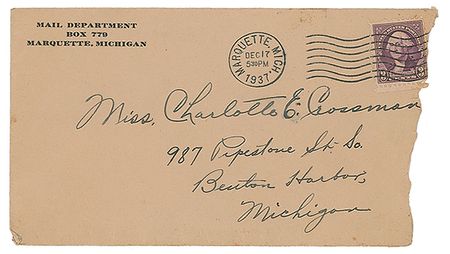 MAIL DEPARTMENT
BOX 779
MARQUETTE, MICHIGAN
MARQUETTE, MICH.
DEC 17
5 30 PM
1937
3
Miss, Charlotte E. Crossman
987 Pipestone St. So.
Benton Harbor,
Michigan